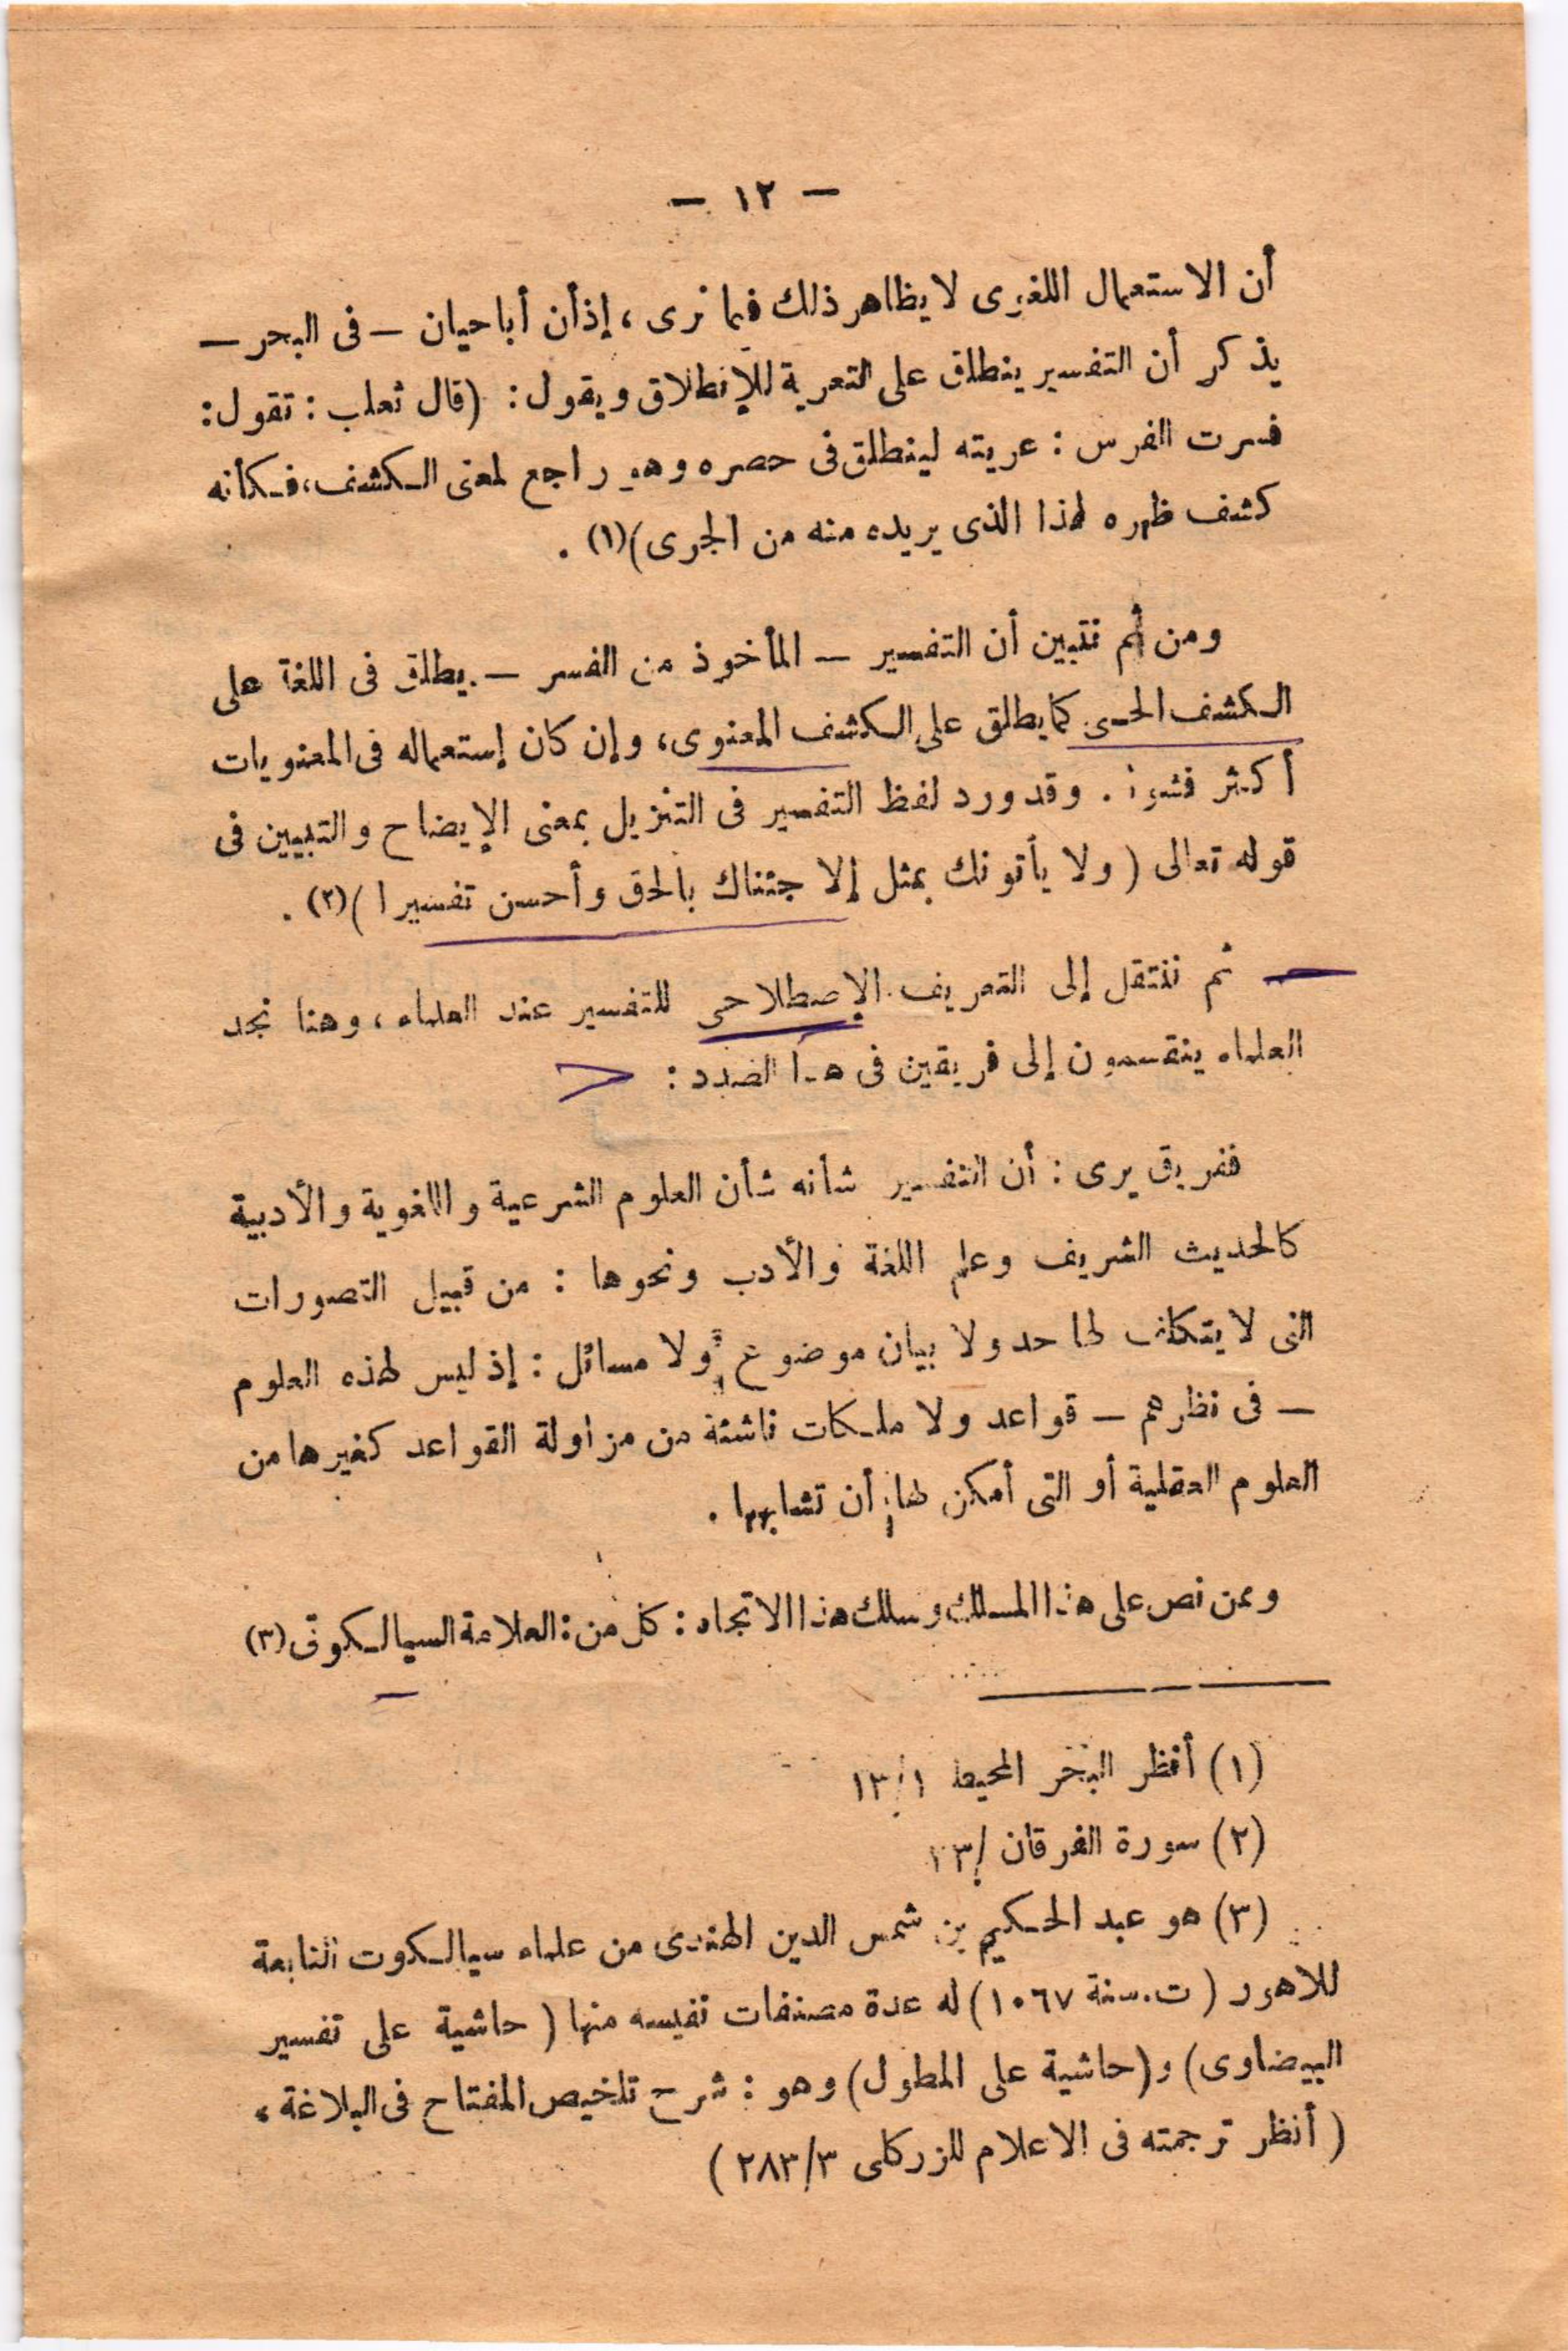 — ١٢ —
أن الاستعمال اللغوى لا يظاهر ذلك فيما نرى ، إذ أن أبا حيان — فى البحر —
يذكر أن التفسير ينطلق على التعرية للإنطلاق ويقول : (قال ثعلب : تقول :
فسرت الفرس : عريته لينطلق فى حصره وهو راجع لمعنى الكشف ، فكأنه
كشف ظهره لهذا الذى يريده منه من الجرى)(١) .
ومن ثم نتبين أن التفسير — المأخوذ من الفسر — يطلق فى اللغة على
الكشف الحسى كما يطلق على الكشف المعنوى ، وإن كان إستعماله فى المعنويات
أكثر فشوا . وقد ورد لفظ التفسير فى التنزيل بمعنى الإيضاح والتبيين فى
قوله تعالى ( ولا يأتونك بمثل إلا جئناك بالحق وأحسن تفسيرا )(٢) .
— ثم ننتقل إلى التعريف الإصطلاحى للتفسير عند العلماء ، وهنا نجد
العلماء ينقسمون إلى فريقين فى هذا الصدد :
ففريق يرى : أن التفسير شأنه شأن العلوم الشرعية واللغوية والأدبية
كالحديث الشريف وعلم اللغة والأدب ونحوها : من قبيل التصورات
التى لا يتكلف لها حد ولا بيان موضوع ولا مسائل : إذ ليس لهذه العلوم
— فى نظرهم — قواعد ولا ملكات ناشئة من مزاولة القواعد كغيرها من
العلوم العقلية أو التى أمكن لها أن تشابهها .
وممن نص على هذا المسلك وسلك هذا الاتجاه : كل من : العلامة السيالكوتى (٣)
(١) أنظر البحر المحيط ١/١٣
(٢) سورة الفرقان /٣٣
(٣) هو عبد الحكيم بن شمس الدين الهندى من علماء سيالكوت التابعة
للاهور ( ت . سنة ١٠٦٧ ) له عدة مصنفات نفيسه منها ( حاشية على تفسير
البيضاوى) و(حاشية على المطول) وهو : شرح تلخيص المفتاح فى البلاغة ،
( أنظر ترجمته فى الاعلام للزركلى ٢٨٣/٣ )